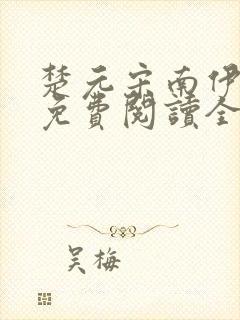 楚元宋南伊
免費閱讀全
吴梅